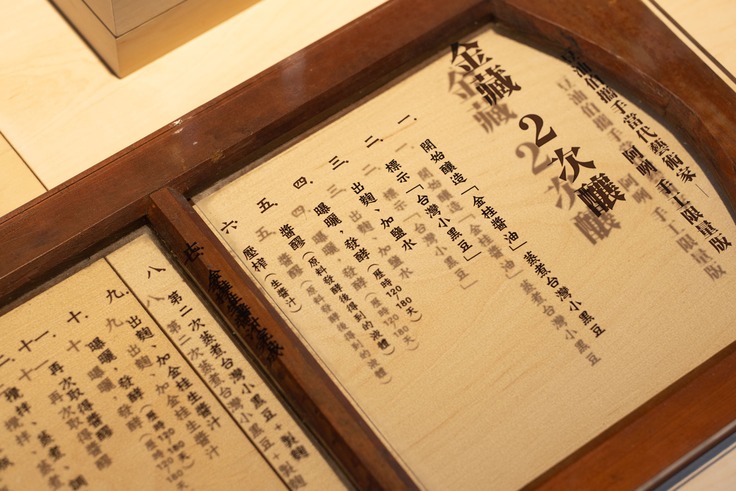 豆油伯攜手當代藝術家 阿咧 手工限量版
金藏 2次釀
一. 開始釀造「金桂醬油」蒸煮台灣小黑豆
二. 標示「台灣小黑豆」
三. 出麴、加鹽水
四. 曝曬、發酵(蔭時120 180天)
五. 醬醪(原料發酵後得到的液體)
六. 壓榨(生醬汁)
七. 金桂生醬汁
八. 第二次蒸煮台灣小黑豆+製麴
九. 出麴、加金桂生醬汁
十. 曝曬、發酵(蔭時120 180天)
十一. 再次取得醬醪
攪拌、蒸煮、調